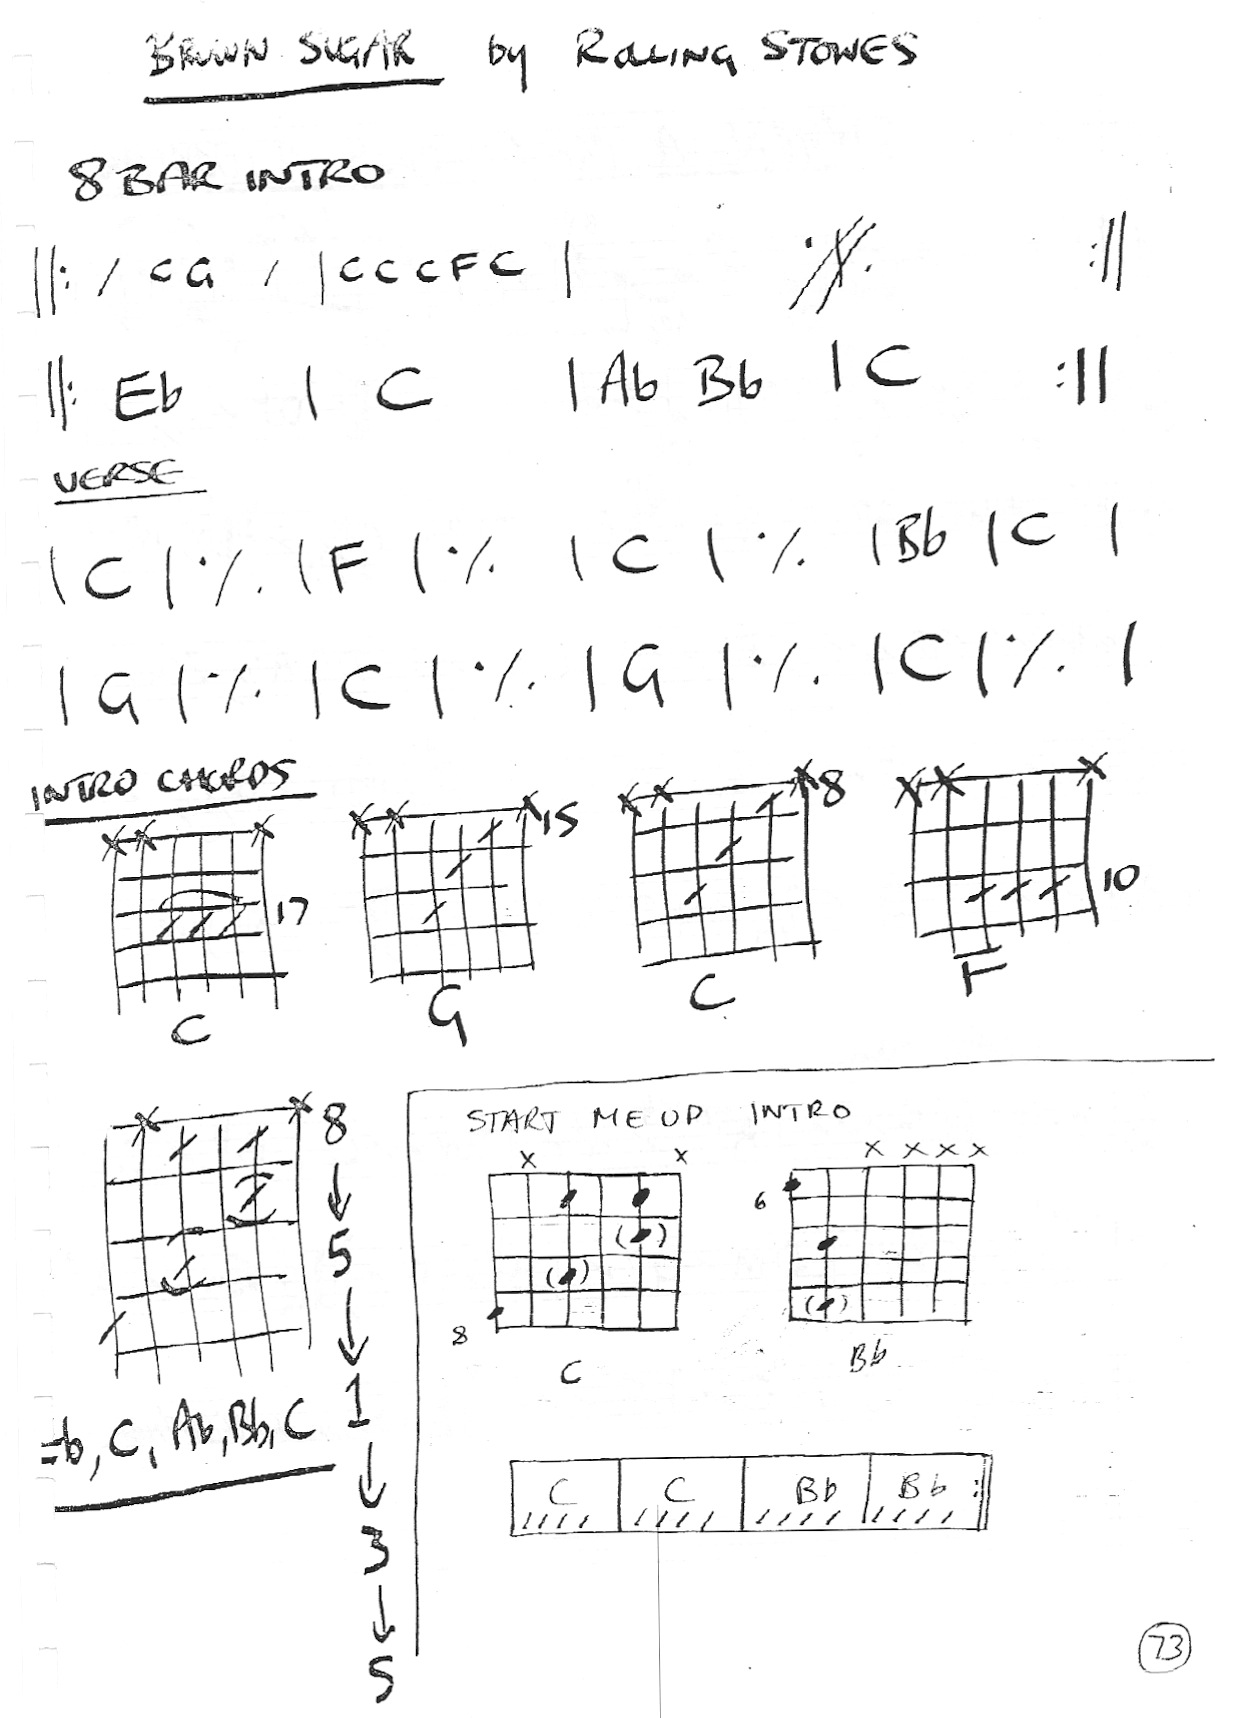 BROWN SUGAR by ROLLING STONES
8 BAR INTRO
||: / C G / | C C C F C | ·//. :||
||: Eb | C | Ab Bb | C :||
VERSE
| C | ·/. | F | ·/. | C | ·/. | Bb | C |
| G | ·/. | C | ·/. | G | ·/. | C | ·/. |
INTRO CHORDS
X X X 17
C
X X X 15
G
X X X 8
C
X X X 10
F
X X 8
↓
5
↓
1
↓
3
↓
5
Eb, C, Ab, Bb, C
START ME UP INTRO
X X
8
C
X X X X
6
Bb
C C Bb Bb :||
//// //// //// ////
73